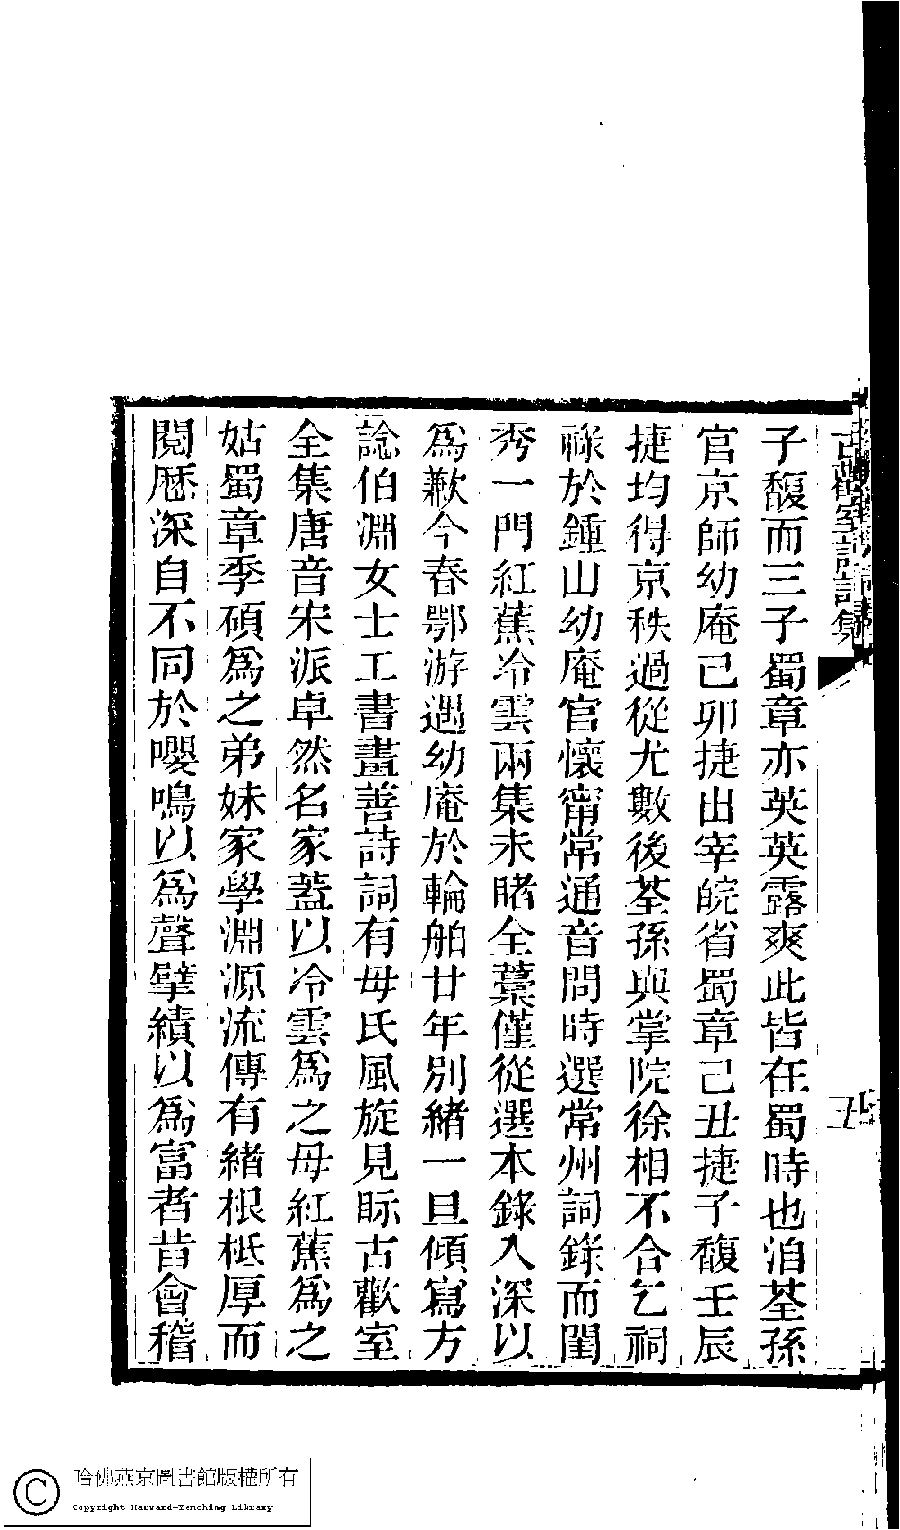 古歡室詩詞集
子馥而三子蜀章亦英英露爽此皆在蜀時也洎荃孫
官京師幼庵己卯捷出宰皖省蜀章己丑捷子馥壬辰
捷均得京秩過從尤數後荃孫與掌院徐相不合乞祠
祿於鍾山幼庵官懷甯常通音問時選常州詞錄而閨
秀一門紅蕉冷雲兩集未睹全藁僅從選本錄入深以
為歉今春鄂游遇幼庵於輪舶廿年別緒一旦傾寫方
諗伯淵女士工書畫善詩詞有母氏風旋見眎古歡室
全集唐音宋派卓然名家蓋以冷雲為之母紅蕉為之
姑蜀章季碩為之弟妹家學淵源流傳有緒根柢厚而
閱歷深自不同於嚶鳴以為聲擘績以為富者昔會稽
哈佛燕京圖書館版權所有
Copyright Harvard-Yenching Library